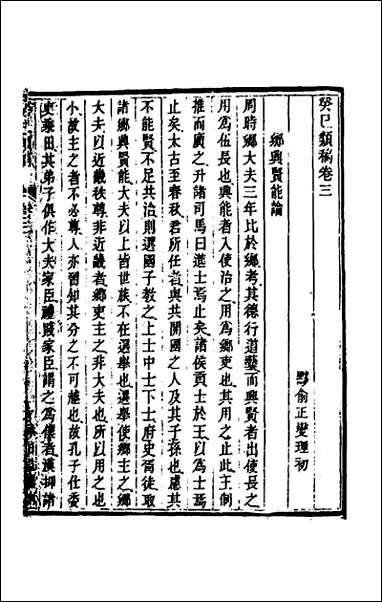 癸巳類稿卷三
黟俞正燮理初
鄉興賢能論
周時鄉大夫三年比於鄉考其德行道藝而興賢者出使長之
用爲伍長也興能者入使治之用爲鄉吏也其用之止此王制
推而廣之升諸司馬曰進士焉止矣諸侯貢士於王以爲士焉
止矣太古至春秋君所任者與共開國之人及其子孫也慮其
不能賢不足共治則選國子敎之上士中士下士府史胥徒取
諸鄉興賢能大夫以上皆世族不在選舉也選舉使鄉主之鄉
大夫以近畿秩尊非近畿者鄉吏主之非大夫也所以用之也
小故主之者不必尊人亦習知其分之不可越也故孔子仕委
吏乘田其弟子俱作大夫家臣禮賤家臣謂之爲僕者漢抑諸